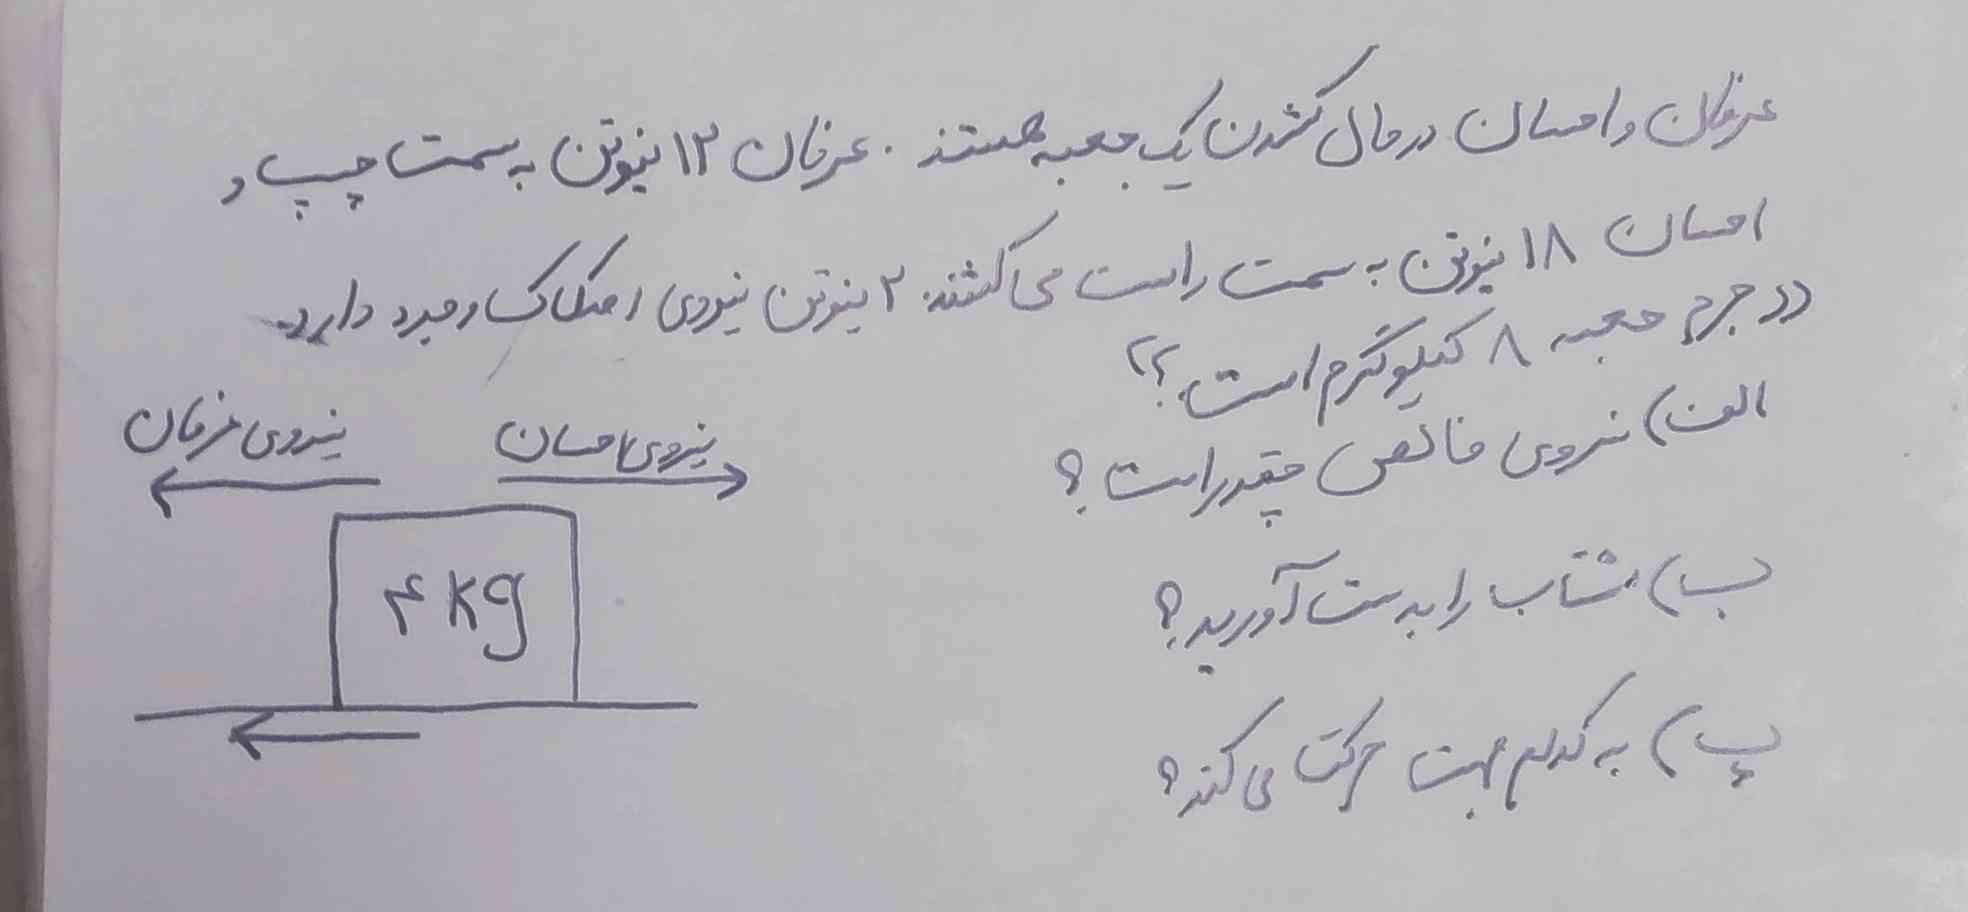 عرفان و احسان در حال کشیدن یک جعبه هستند. عرفان ۱۲ نیوتن به سمت چپ و
احسان ۱۸ نیوتن به سمت راست می کشند. ۲ نیوتن نیروی اصطکاک وجود دارد.
«جرم جعبه ۸ کیلوگرم است.؟»
الف) نیروی خالص چقدر است؟
ب) شتاب را بدست آورید؟
پ) به کدام جهت حرکت می کند؟
نیروی عرفان
نیروی احسان
۴ kg